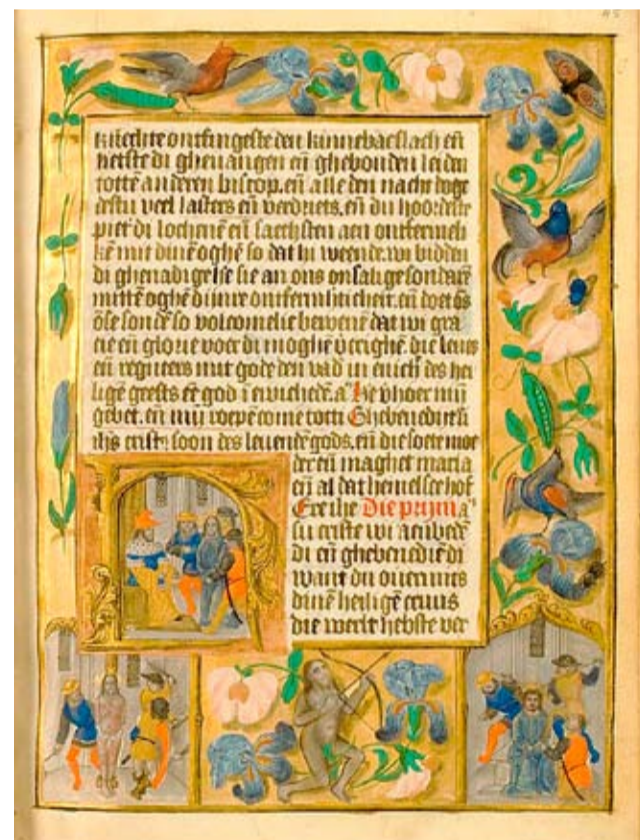 knechte ontfingeste den kinnebacslach eñ
hetste di ghevangen eñ ghebonden leiden
totten anderen biscop. eñ alle den nacht doge
destu veel lasters eñ verdriets. eñ du hoordeste
di eñ sachsten aen ontfermeli
mit dinē oghē so dat hi weende. wi bidden
di ghenadige sie an ons onsalige sondarē
mittē oghē dijnre ontfermhticheit. eñ doet ōs
ōse sondē so volcomelic bewenē dat wi gra
cie eñ glorie voer di moghē vcrighē. die leues
eñ regneers mit gode den vad in enich des hei
ligē geests eē god ī ewichedē. a Here vhoer mijn
gebet. eñ mijn roepē come totti Ghebenedit si
ihs crists soon des leuendē gods. eñ die soete moe
der eñ maghet maria
eñ al dat hemelsce hof
Ere ihe Die prijm a
su criste wi aenbedē
di eñ ghebenediē di
want du ouermits
dinē heiligē cruus
die werlt hebste ver